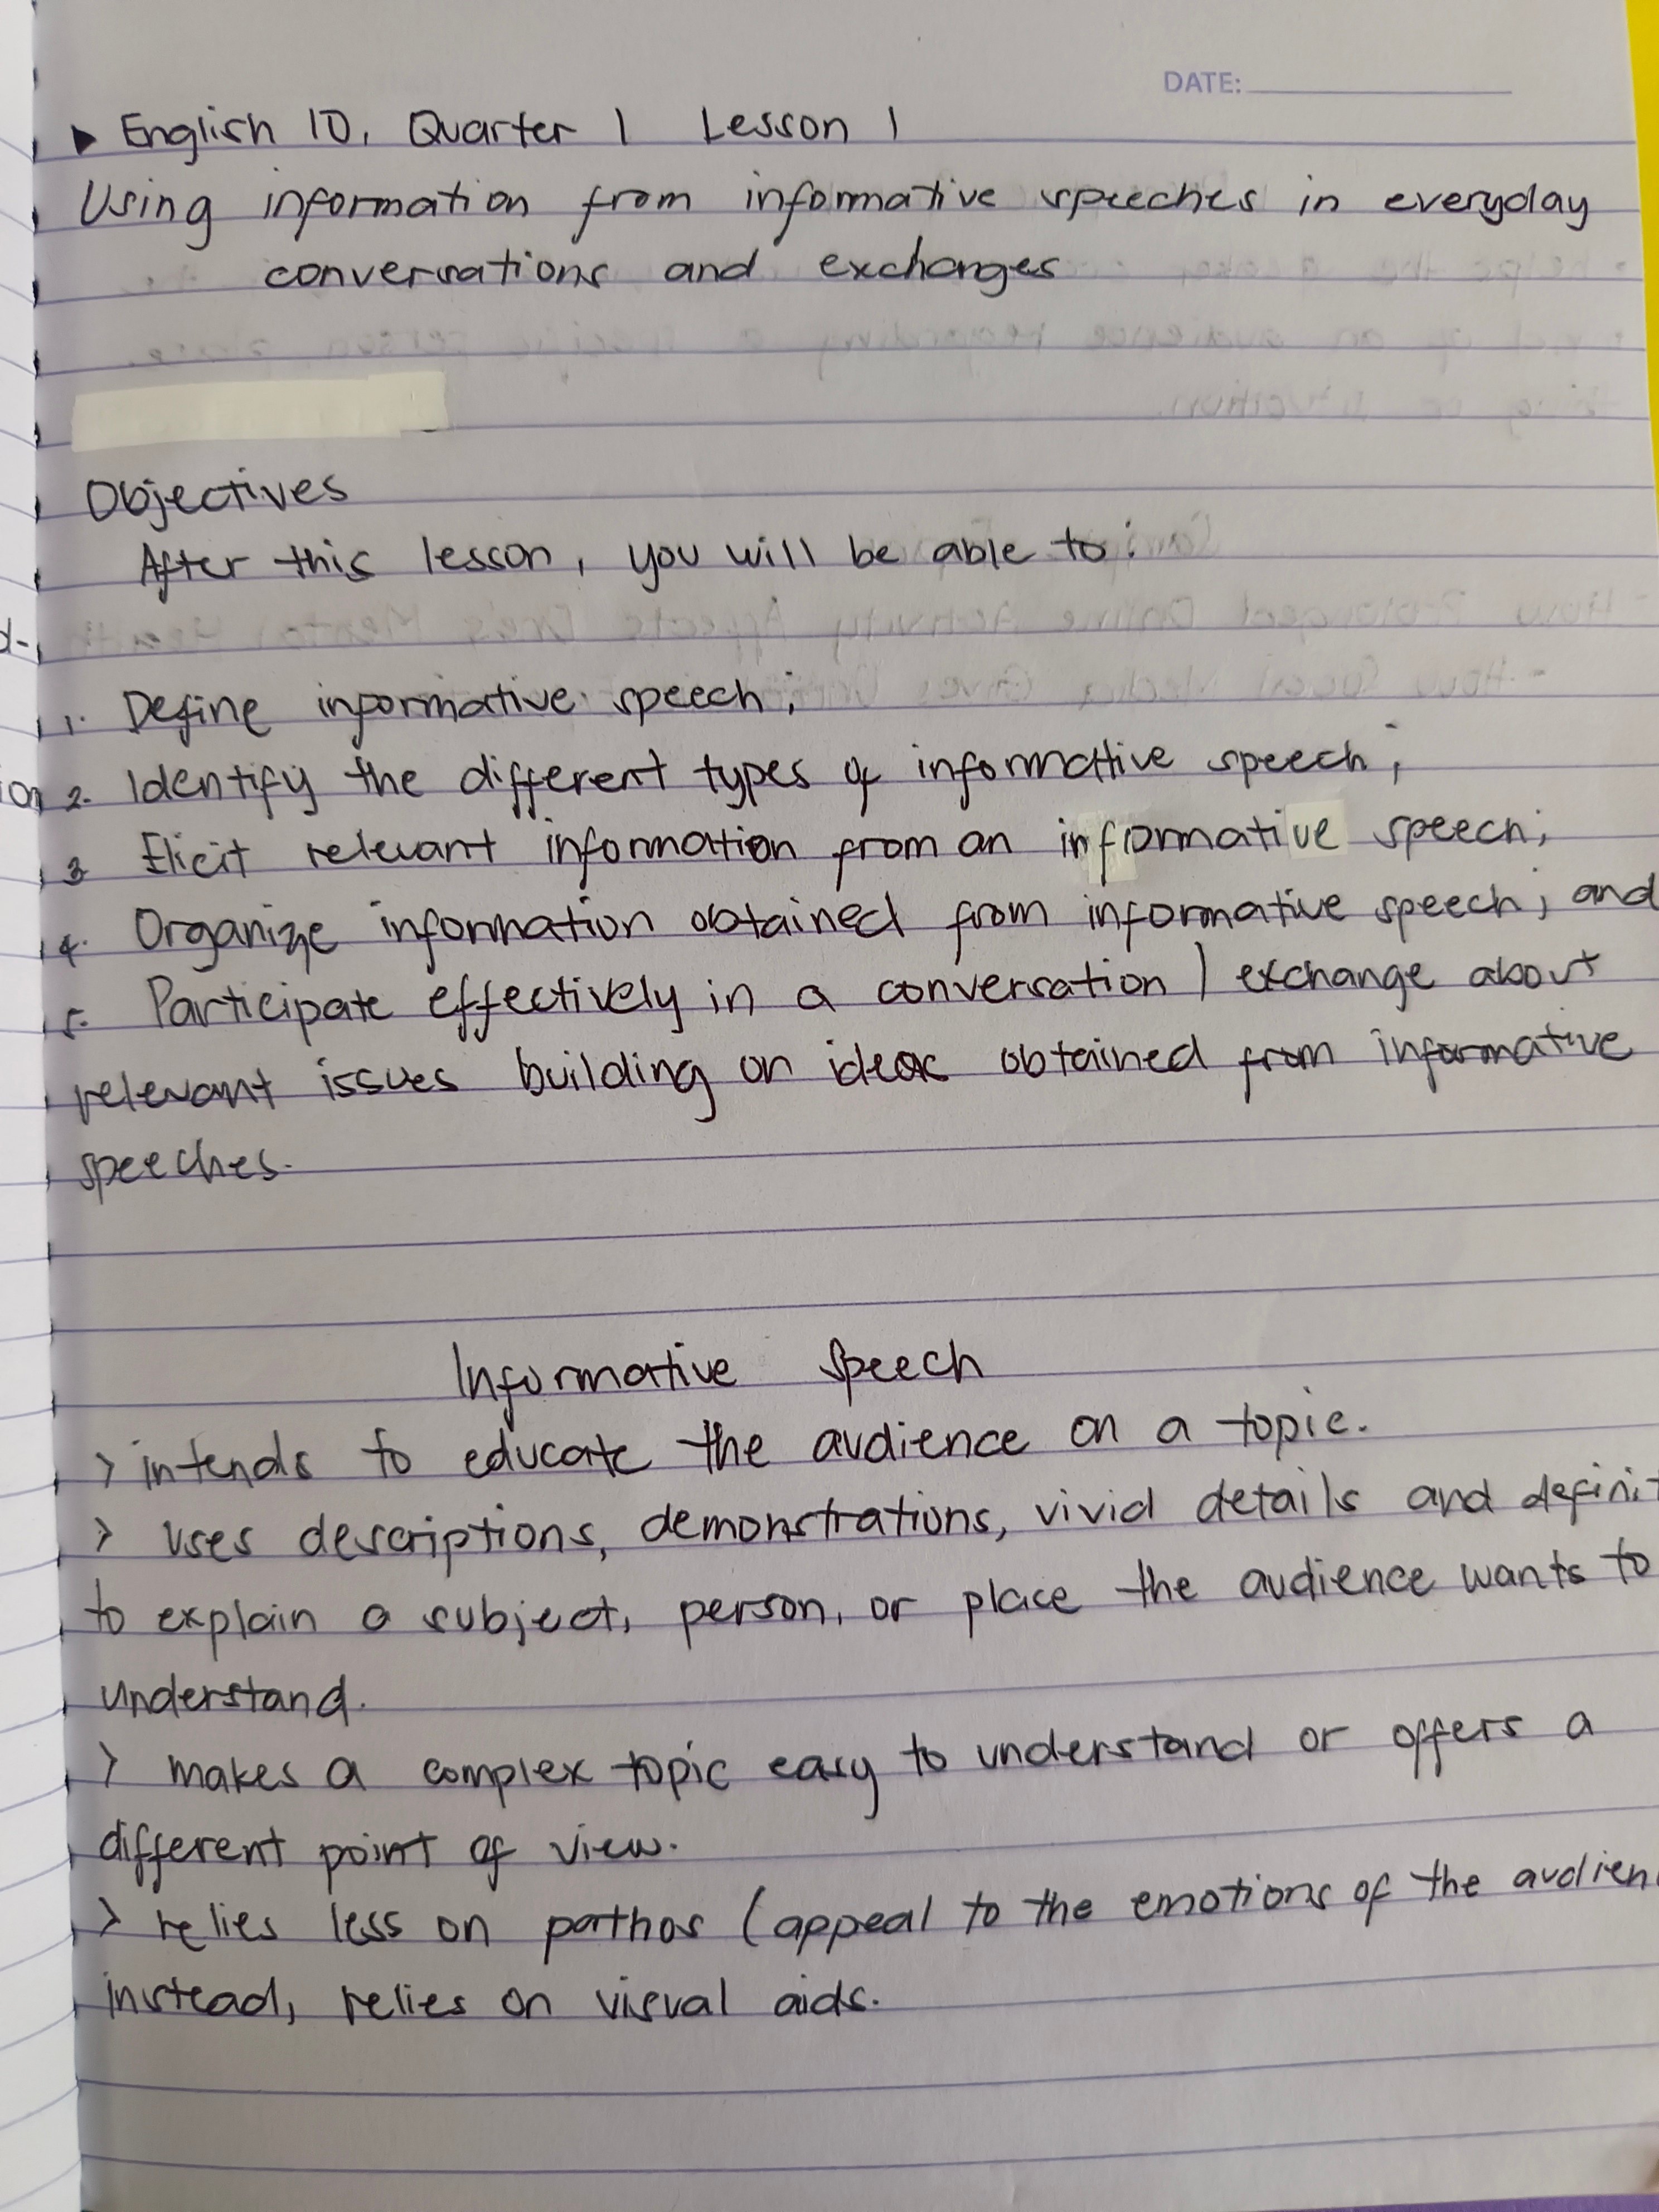 DATE:
▶ English 10, Quarter 1 Lesson 1
Using information from informative speeches in everyday
conversations and exchanges
Objectives
After this lesson, you will be able to:
1. Define informative speech;
2. Identify the different types of informative speech;
3 Elicit relevant information from an informative speech;
4. Organize information obtained from informative speech; and
5. Participate effectively in a conversation / exchange about
relevant issues building on ideas obtained from informative
speeches.
Informative Speech
> intends to educate the audience on a topic.
> uses descriptions, demonstrations, vivid details and definit
to explain a subject, person, or place the audience wants to
understand.
> makes a complex topic easy to understand or offers a
different point of view.
> relies less on pathos (appeal to the emotions of the audien
instead, relies on visual aids.